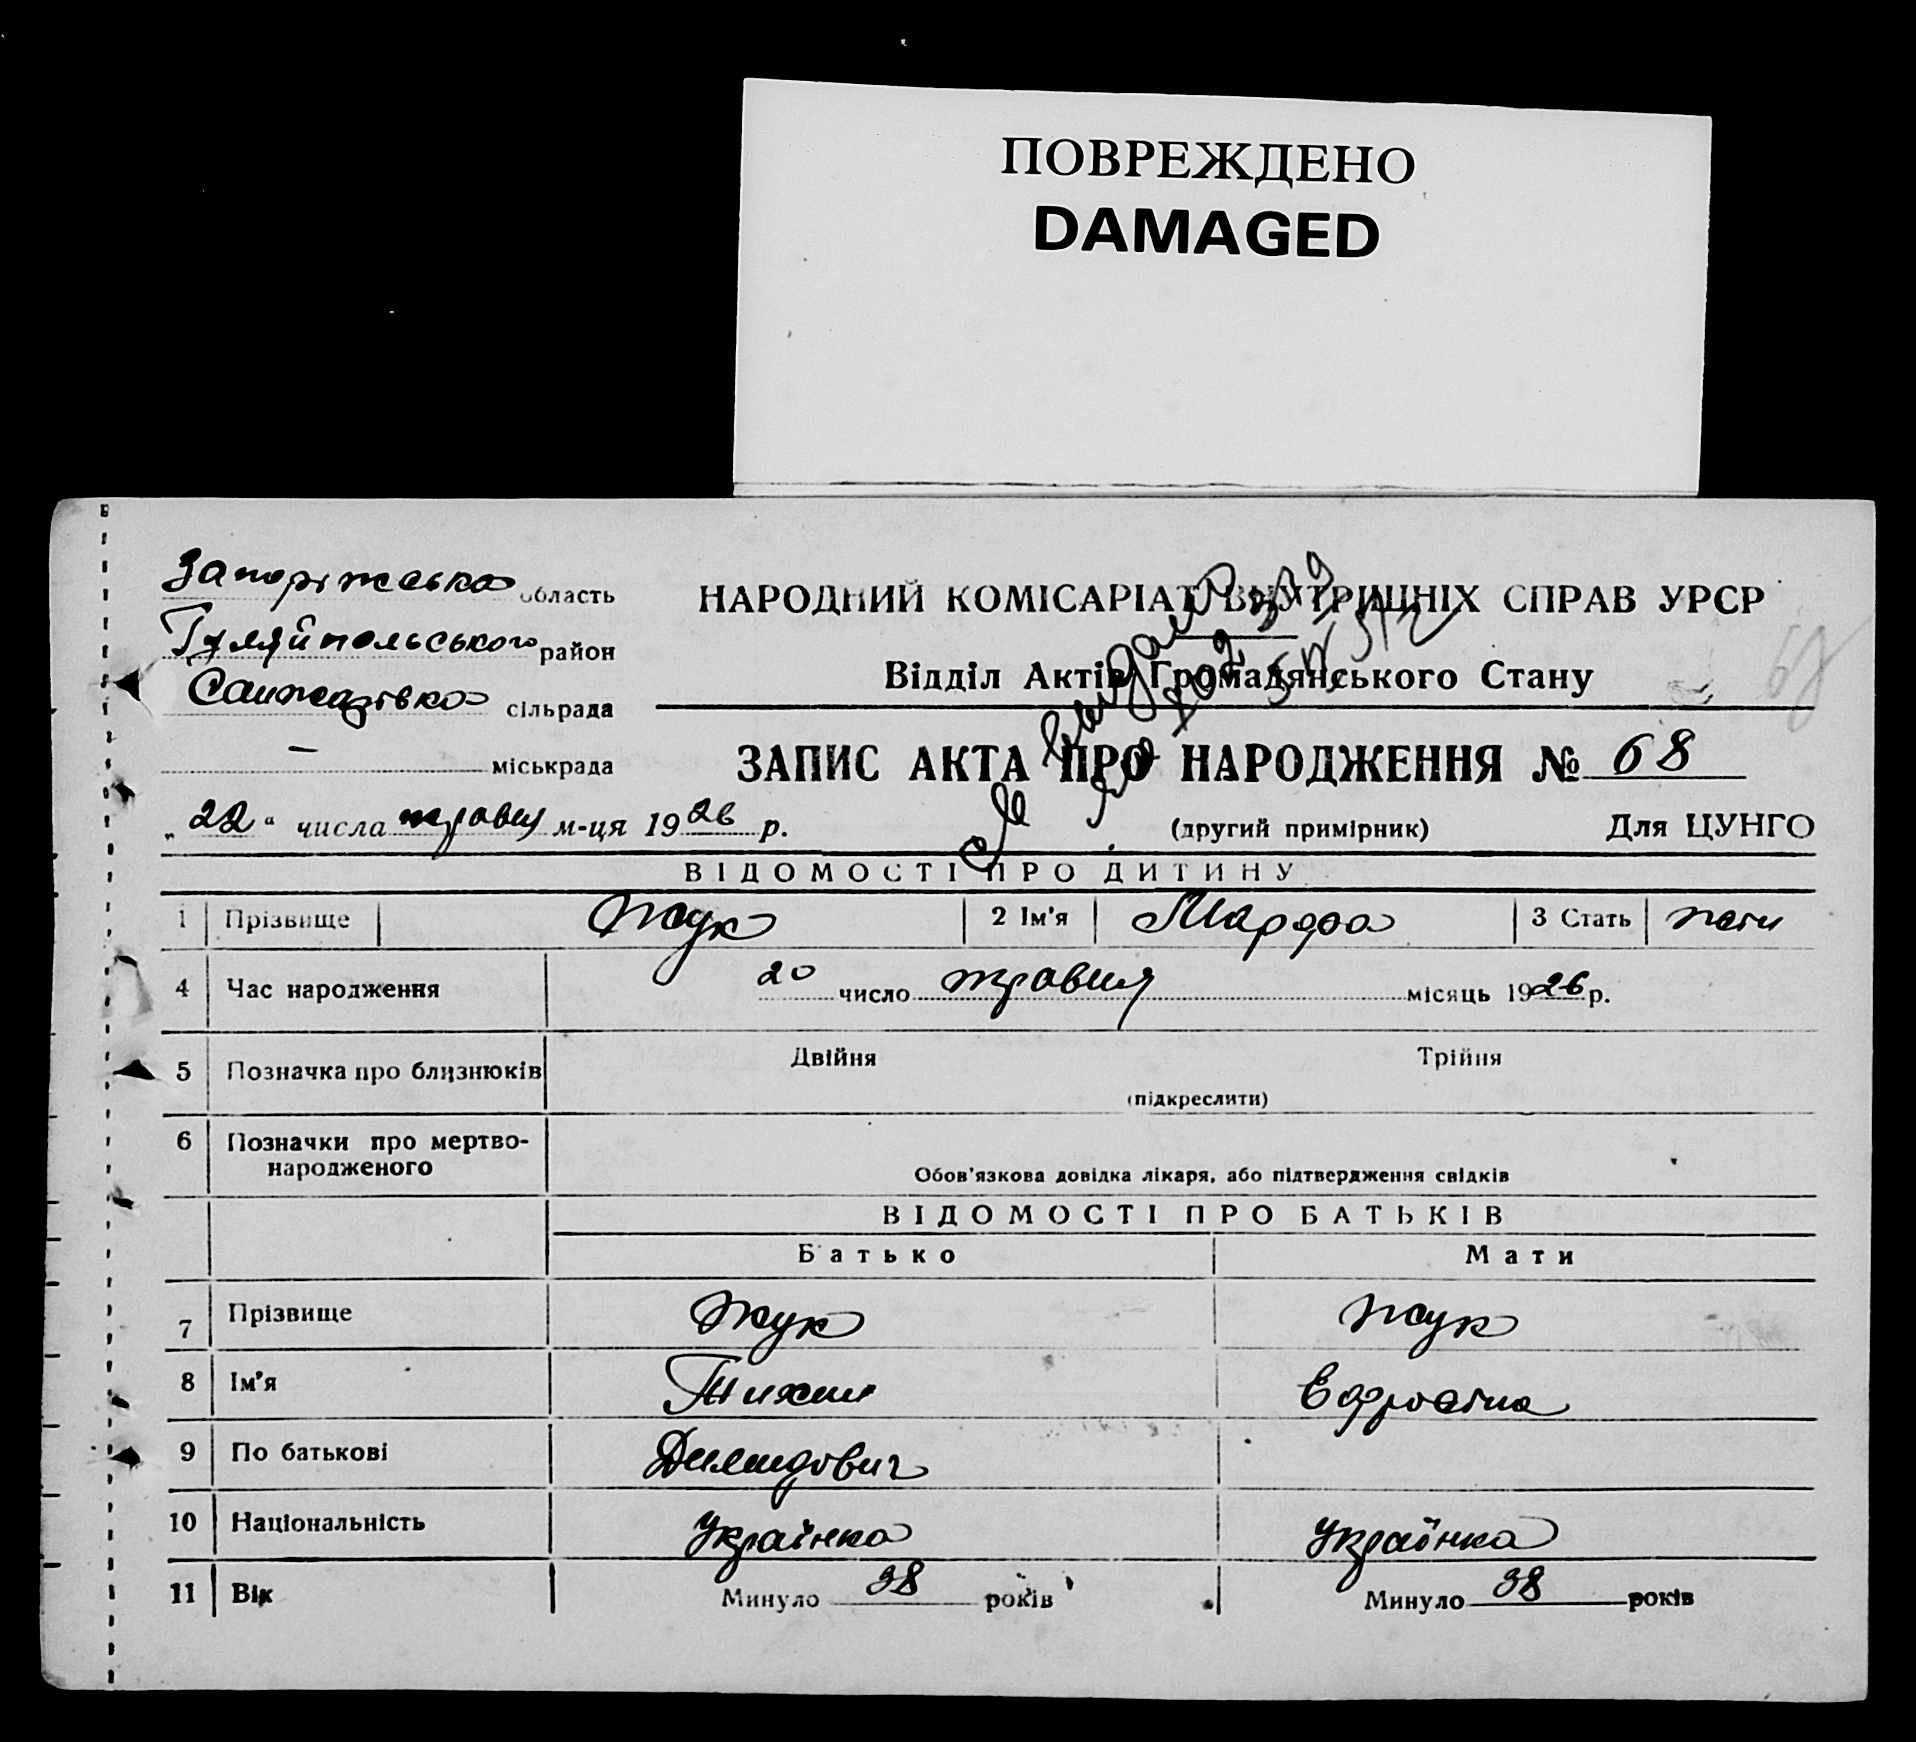 ПОВРЕЖДЕНО
DAMAGED
Запоріжська область
Гуляйпольського район
сільрада
— міськрада
НАРОДНИЙ КОМІСАРІАТ ВНУТРІШНІХ СПРАВ УРСР
Відділ Актів Громадянського Стану
68
ЗАПИС АКТА ПРО НАРОДЖЕННЯ № 68
„22“ числа травня м-ця 1926 р.
(другий примірник) Для ЦУНГО
ВІДОМОСТІ ПРО ДИТИНУ
1 Прізвище Жук 2 Ім'я Марфа 3 Стать жін
4 Час народження 20 число травня місяць 1926 р.
5 Позначка про близнюків Двійня Трійня
(підкреслити)
6 Позначки про мертво-
народженого
Обов'язкова довідка лікаря, або підтвердження свідків
ВІДОМОСТІ ПРО БАТЬКІВ
Батько Мати
7 Прізвище Жук Жук
8 Ім'я Тихин
9 По батькові
10 Національність Українка Українка
11 Вік Минуло 38 років Минуло 38 років